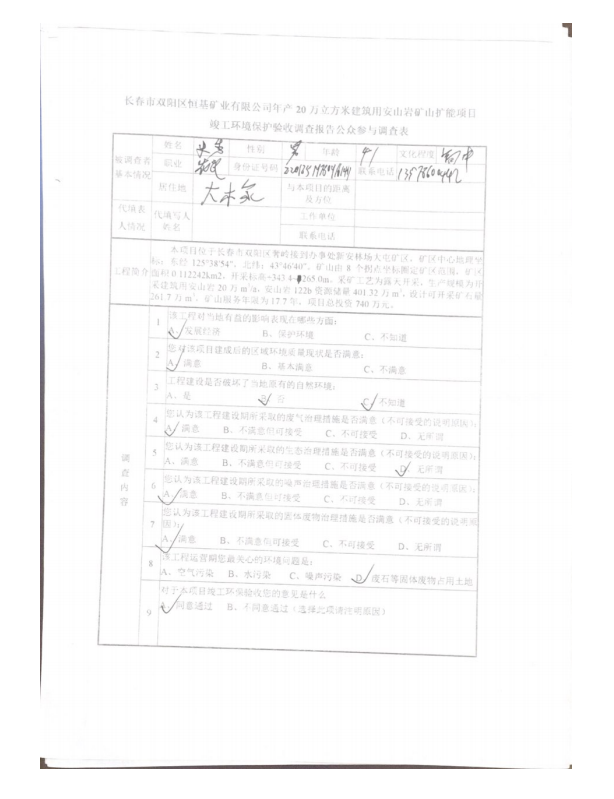 长春市双阳区恒基矿业有限公司年产 20 万立方米建筑用安山岩矿山扩能项目
竣工环境保护验收调查报告公众参与调查表
被调查者基本情况
姓名
性别 男 年龄 41 文化程度 初中
职业 农民 身份证号码
联系电话
居住地
与本项目的距离及方位
代填表人情况
代填写人的姓名
工作单位
联系电话
工程简介
本项目位于长春市双阳区奢岭接到办事处新安林场大屯矿区。矿区中心地理坐
标：东经 125°38′54″，北纬：43°46′40″，矿山由 8 个拐点坐标圈定矿区范围，矿区
面积 0.112242km2，开采标高+343.4-+265.0m，采矿工艺为露天开采，生产规模为开
采建筑用安山岩 20 万 m³/a，安山岩 122b 资源储量 401.32 万 m³，设计可开采矿石量
261.7 万 m³，矿山服务年限为 17.7 年，项目总投资 740 万元。
调查内容
1 该工程对当地有益的影响表现在哪些方面：
A、发展经济 B、保护环境 C、不知道
2 您对该项目建成后的区域环境质量现状是否满意：
A、满意 B、基本满意 C、不满意
3 工程建设是否破坏了当地原有的自然环境：
A、是 B、否 C、不知道
4 您认为该工程建设期所采取的废气治理措施是否满意（不可接受的说明原因）：
A、满意 B、不满意但可接受 C、不可接受 D、无所谓
5 您认为该工程建设期所采取的生态治理措施是否满意（不可接受的说明原因）：
A、满意 B、不满意但可接受 C、不可接受 D、无所谓
6 您认为该工程建设期所采取的噪声治理措施是否满意（不可接受的说明原因）：
A、满意 B、不满意但可接受 C、不可接受 D、无所谓
7 您认为该工程建设期所采取的固体废物治理措施是否满意（不可接受的说明原
因）：
A、满意 B、不满意但可接受 C、不可接受 D、无所谓
8 该工程运营期您最关心的环境问题是：
A、空气污染 B、水污染 C、噪声污染 D、废石等固体废物占用土地
9 对于本项目竣工环保验收您的意见是什么
A、同意通过 B、不同意通过（选择此项请注明原因）